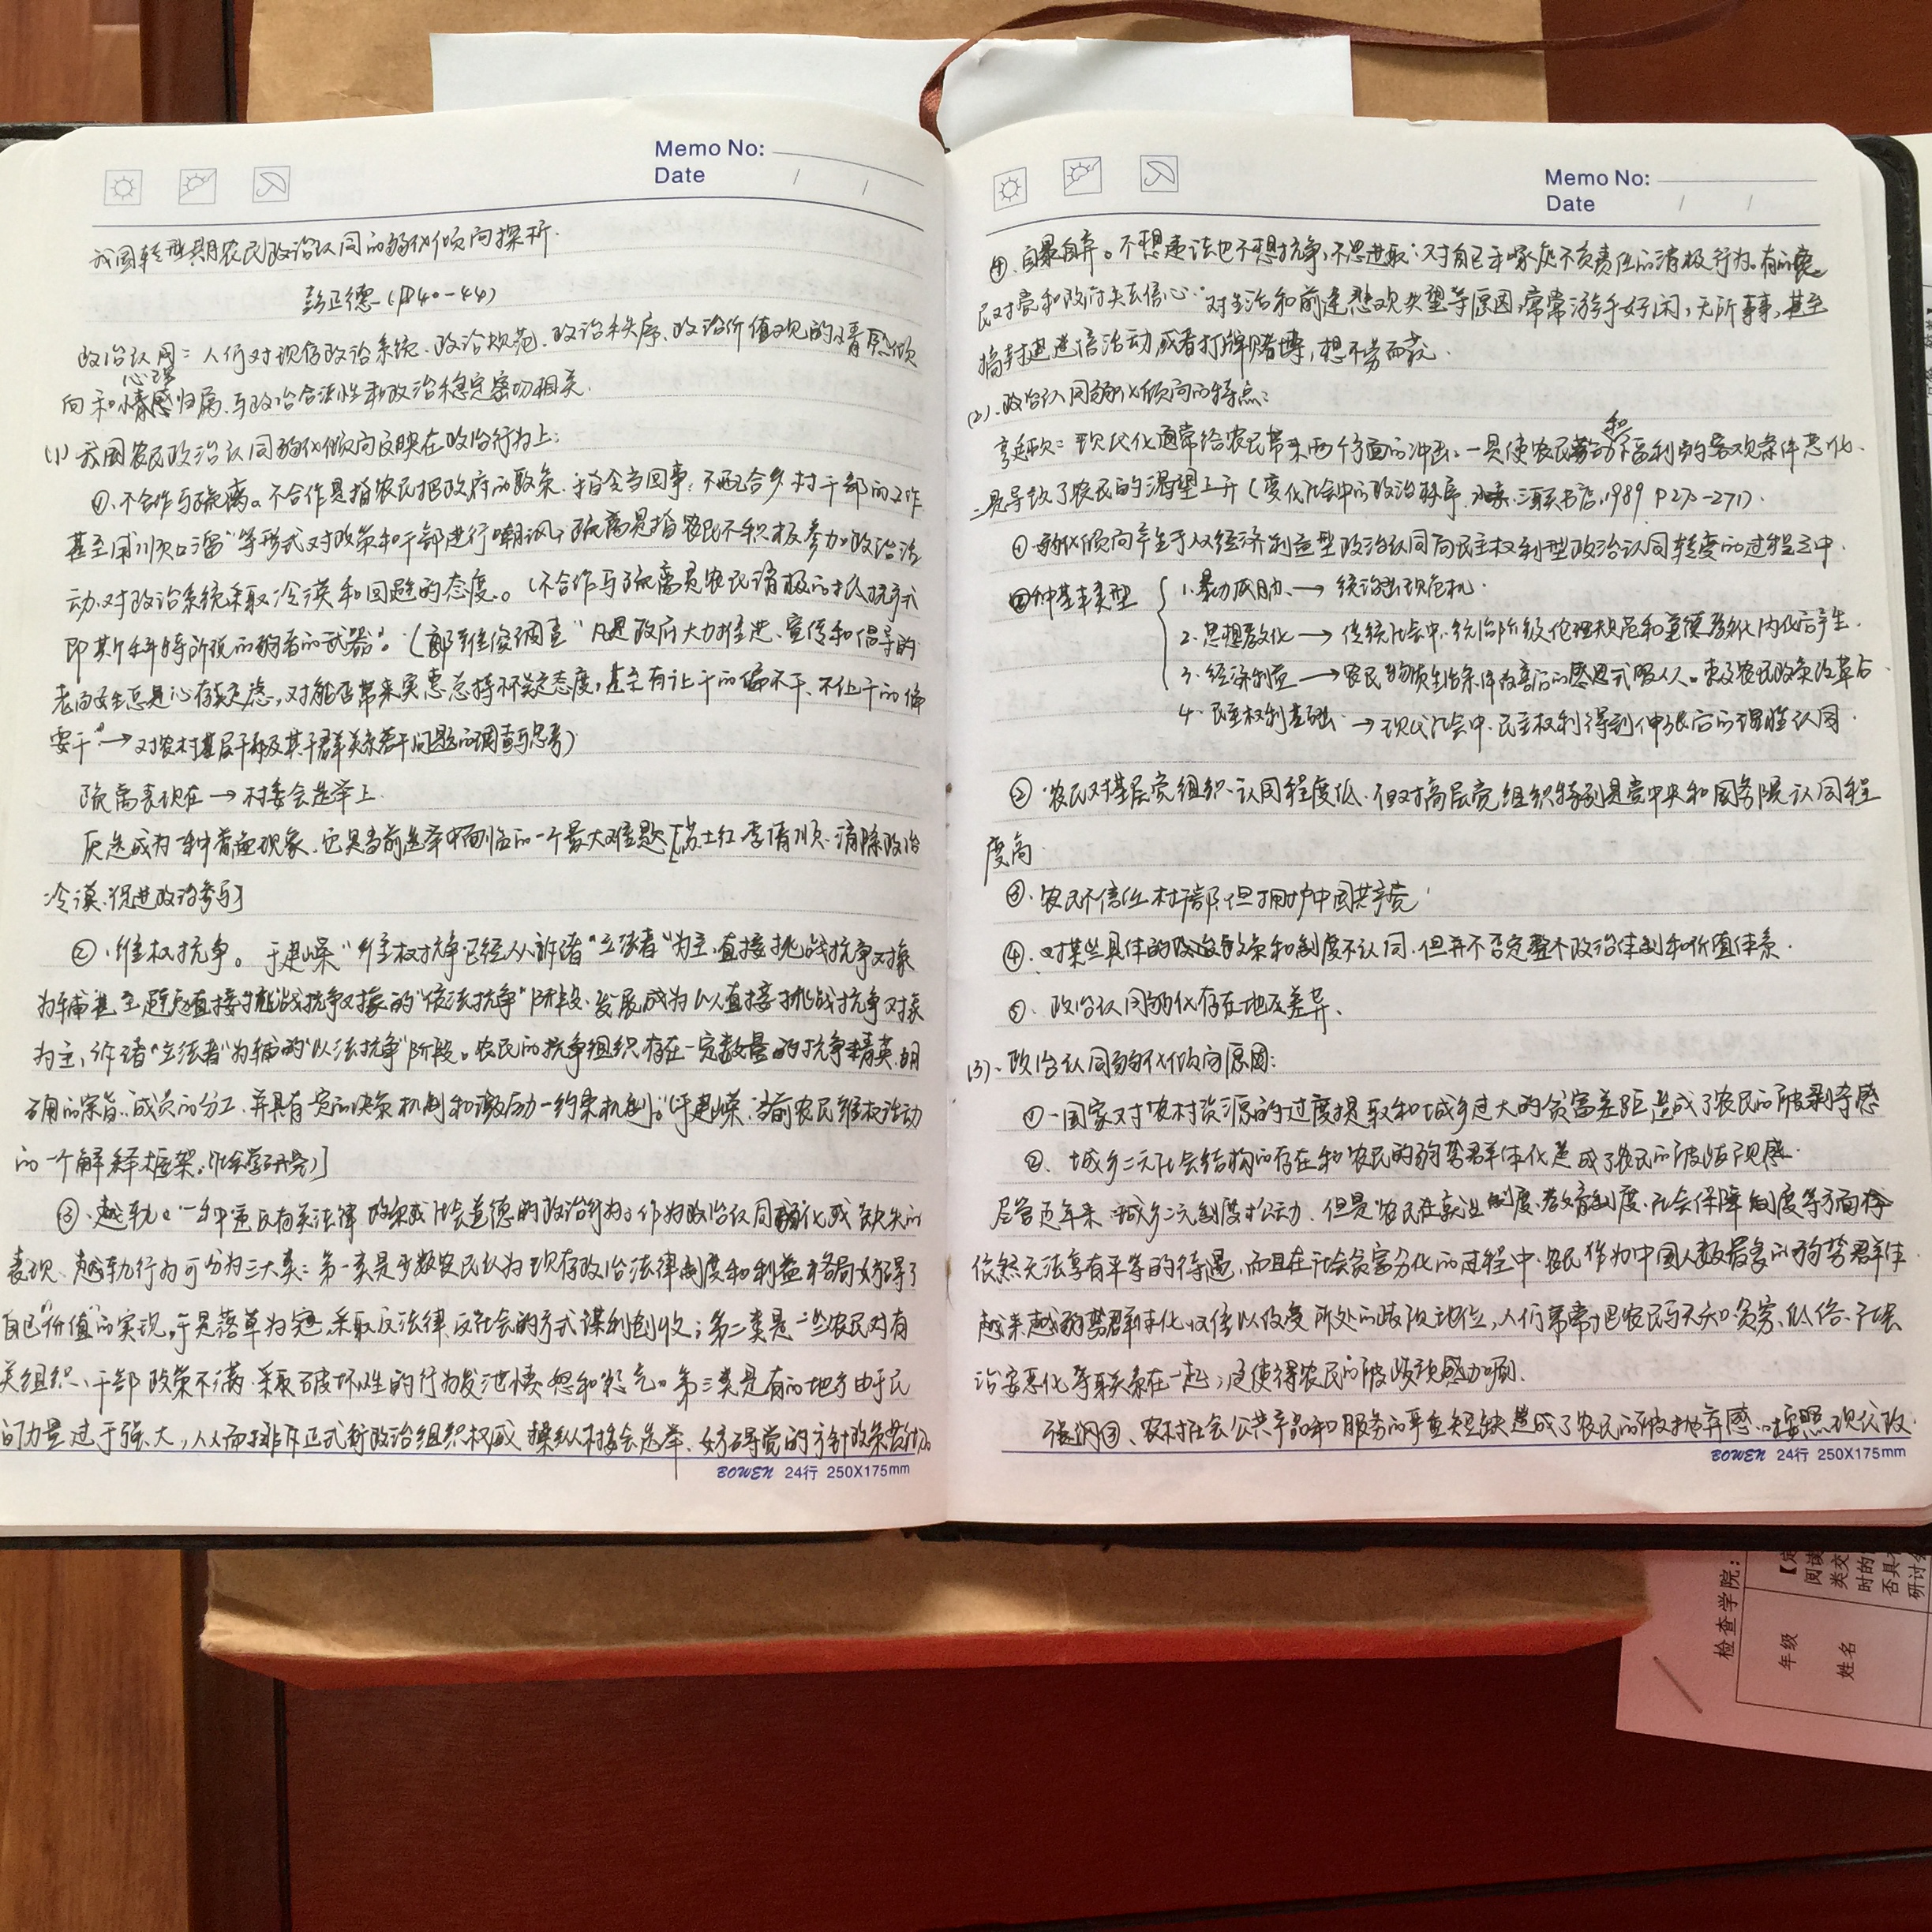 Memo No:
Date / /
我国转型期农民政治认同的弱化倾向探析.
彭正德 (P40-44)
政治认同: 人们对现存政治系统、政治规范、政治秩序、政治价值观的情感倾
心理
向和情感归属,与政治合法性和政治稳定密切相关.
(1) 我国农民政治认同弱化倾向反映在政治行为上:
①、不合作与疏离。不合作是指农民把政府的政策、指令当回事,不配合乡村干部的工作
甚至用"顺口溜"等形式对政策和干部进行嘲讽;疏离是指农民不积极参加政治活
动,对政治系统采取冷漠和回避的态度。(不合作与疏离是农民消极的抵抗方式
即斯科特所说的弱者的武器"。(郭维俊调查"凡是政府大力推进、宣传和倡导的
老百姓总是心存疑虑,对能否带来实惠总持怀疑态度,甚至有让干的偏不干、不让干的偏
要干"→对农村基层干部及其干群关系若干问题的调查与思考)
疏离表现在→村委会选举上.
厌选成为一种普遍现象,它是当前选举中面临的一个最大难题[苏士红 李倩 顺.消除政治
冷漠.促进政治参与]
②、维权抗争。于建嵘"维权抗争已经从诉诸"立法者"为主,直接挑战抗争对象
为辅甚至避免直接挑战抗争对象的"依法抗争"阶段,发展成为以直接挑战抗争对象
为主,诉诸"立法者"为辅的"以法抗争"阶段。农民的抗争组织存在一定数量的抗争精英、明
确的宗旨、成员的分工,并具有一定的决策机制和激励—约束机制。"(于建嵘.当前农民维权活动
的一个解释框架.《社会学研究》]
③、越轨。一种违反有关法律 政策或社会道德的政治行为。作为政治认同弱化或缺失的
表现、越轨行为可分为三大类: 第一类是少数农民认为现存政治法律制度和利益格局妨碍了
自己"价值"的实现,于是落草为寇,采取反法律反社会的方式谋利创收;第二类是一些农民对有
关组织、干部政策不满,采取破坏性的行为发泄愤怒和怨气。第三类是有的地方由于民
间力量过于强大,从而排斥正式的政治组织权威 操纵村委会选举,妨碍党的方针政策贯彻
BOWEN 24行 250X175mm
Memo No:
Date / /
④、自暴自弃。不想违法也不想抗争,不思进取;对自己和家庭不负责任的消极行为。有的农
民对党和政府失去信心,对生活和前途悲观失望等原因,常常游手好闲,无所事事,甚至
搞封建迷信活动或者打牌赌博,想不劳而获.
(2)、政治认同弱化倾向的特点:
和
亨廷顿: 现代化通常给农民带来两个方面的冲击,一是使农民劳动 福利的客观条件恶化,
二是导致了农民的渴望上升 (变化社会中的政治秩序.北京.三联书店,1989 P270-271).
①弱化倾向产生于从经济利益型政治认同向民主权利型政治认同转变的过程之中.
四种基本类型
1.暴力威胁 → 统治出现危机.
2.思想教化 → 传统社会中,统治阶级伦理规范和道德教化内化后产生.
3.经济利益 → 农民物质生活条件改善后的感恩式服从。来了农民政策改革后.
4.民主权利基础 → 现代社会中,民主权利得到伸张后的理性认同.
② 农民对基层党组织认同程度低,但对高层党组织特别是党中央和国务院认同程
度高
③.农民不信任村干部,但拥护中国共产党.
④.对某些具体的政策和制度不认同,但并不否定整个政治体制和价值体系.
⑤、政治认同弱化存在地区差异.
(3)、政治认同弱化倾向原因:
①—国家对农村资源的过度提取和城乡过大的贫富差距造成了农民的被剥夺感
②、城乡二元社会结构的存在和农民的弱势群体化造成了农民的被歧视感.
尽管近年来 城乡二元制度松动,但是农民在就业制度、教育制度、社会保障制度等方面存
依然无法享有平等的待遇,而且在社会贫富分化的过程中,农民作为中国人数最多的弱势群体
越来越弱势群体化,仅住以及受所处的歧视地位,人们常常把农民与无知、贫穷、低俗、社会
治安恶化等联系在一起,这使得农民的被歧视感加剧.
强调③、农村社会公共产品和服务的严重短缺造成了农民的被抛弃感。按照现代政
BOWEN 24行 250X175mm
检查学院:
年级
姓名